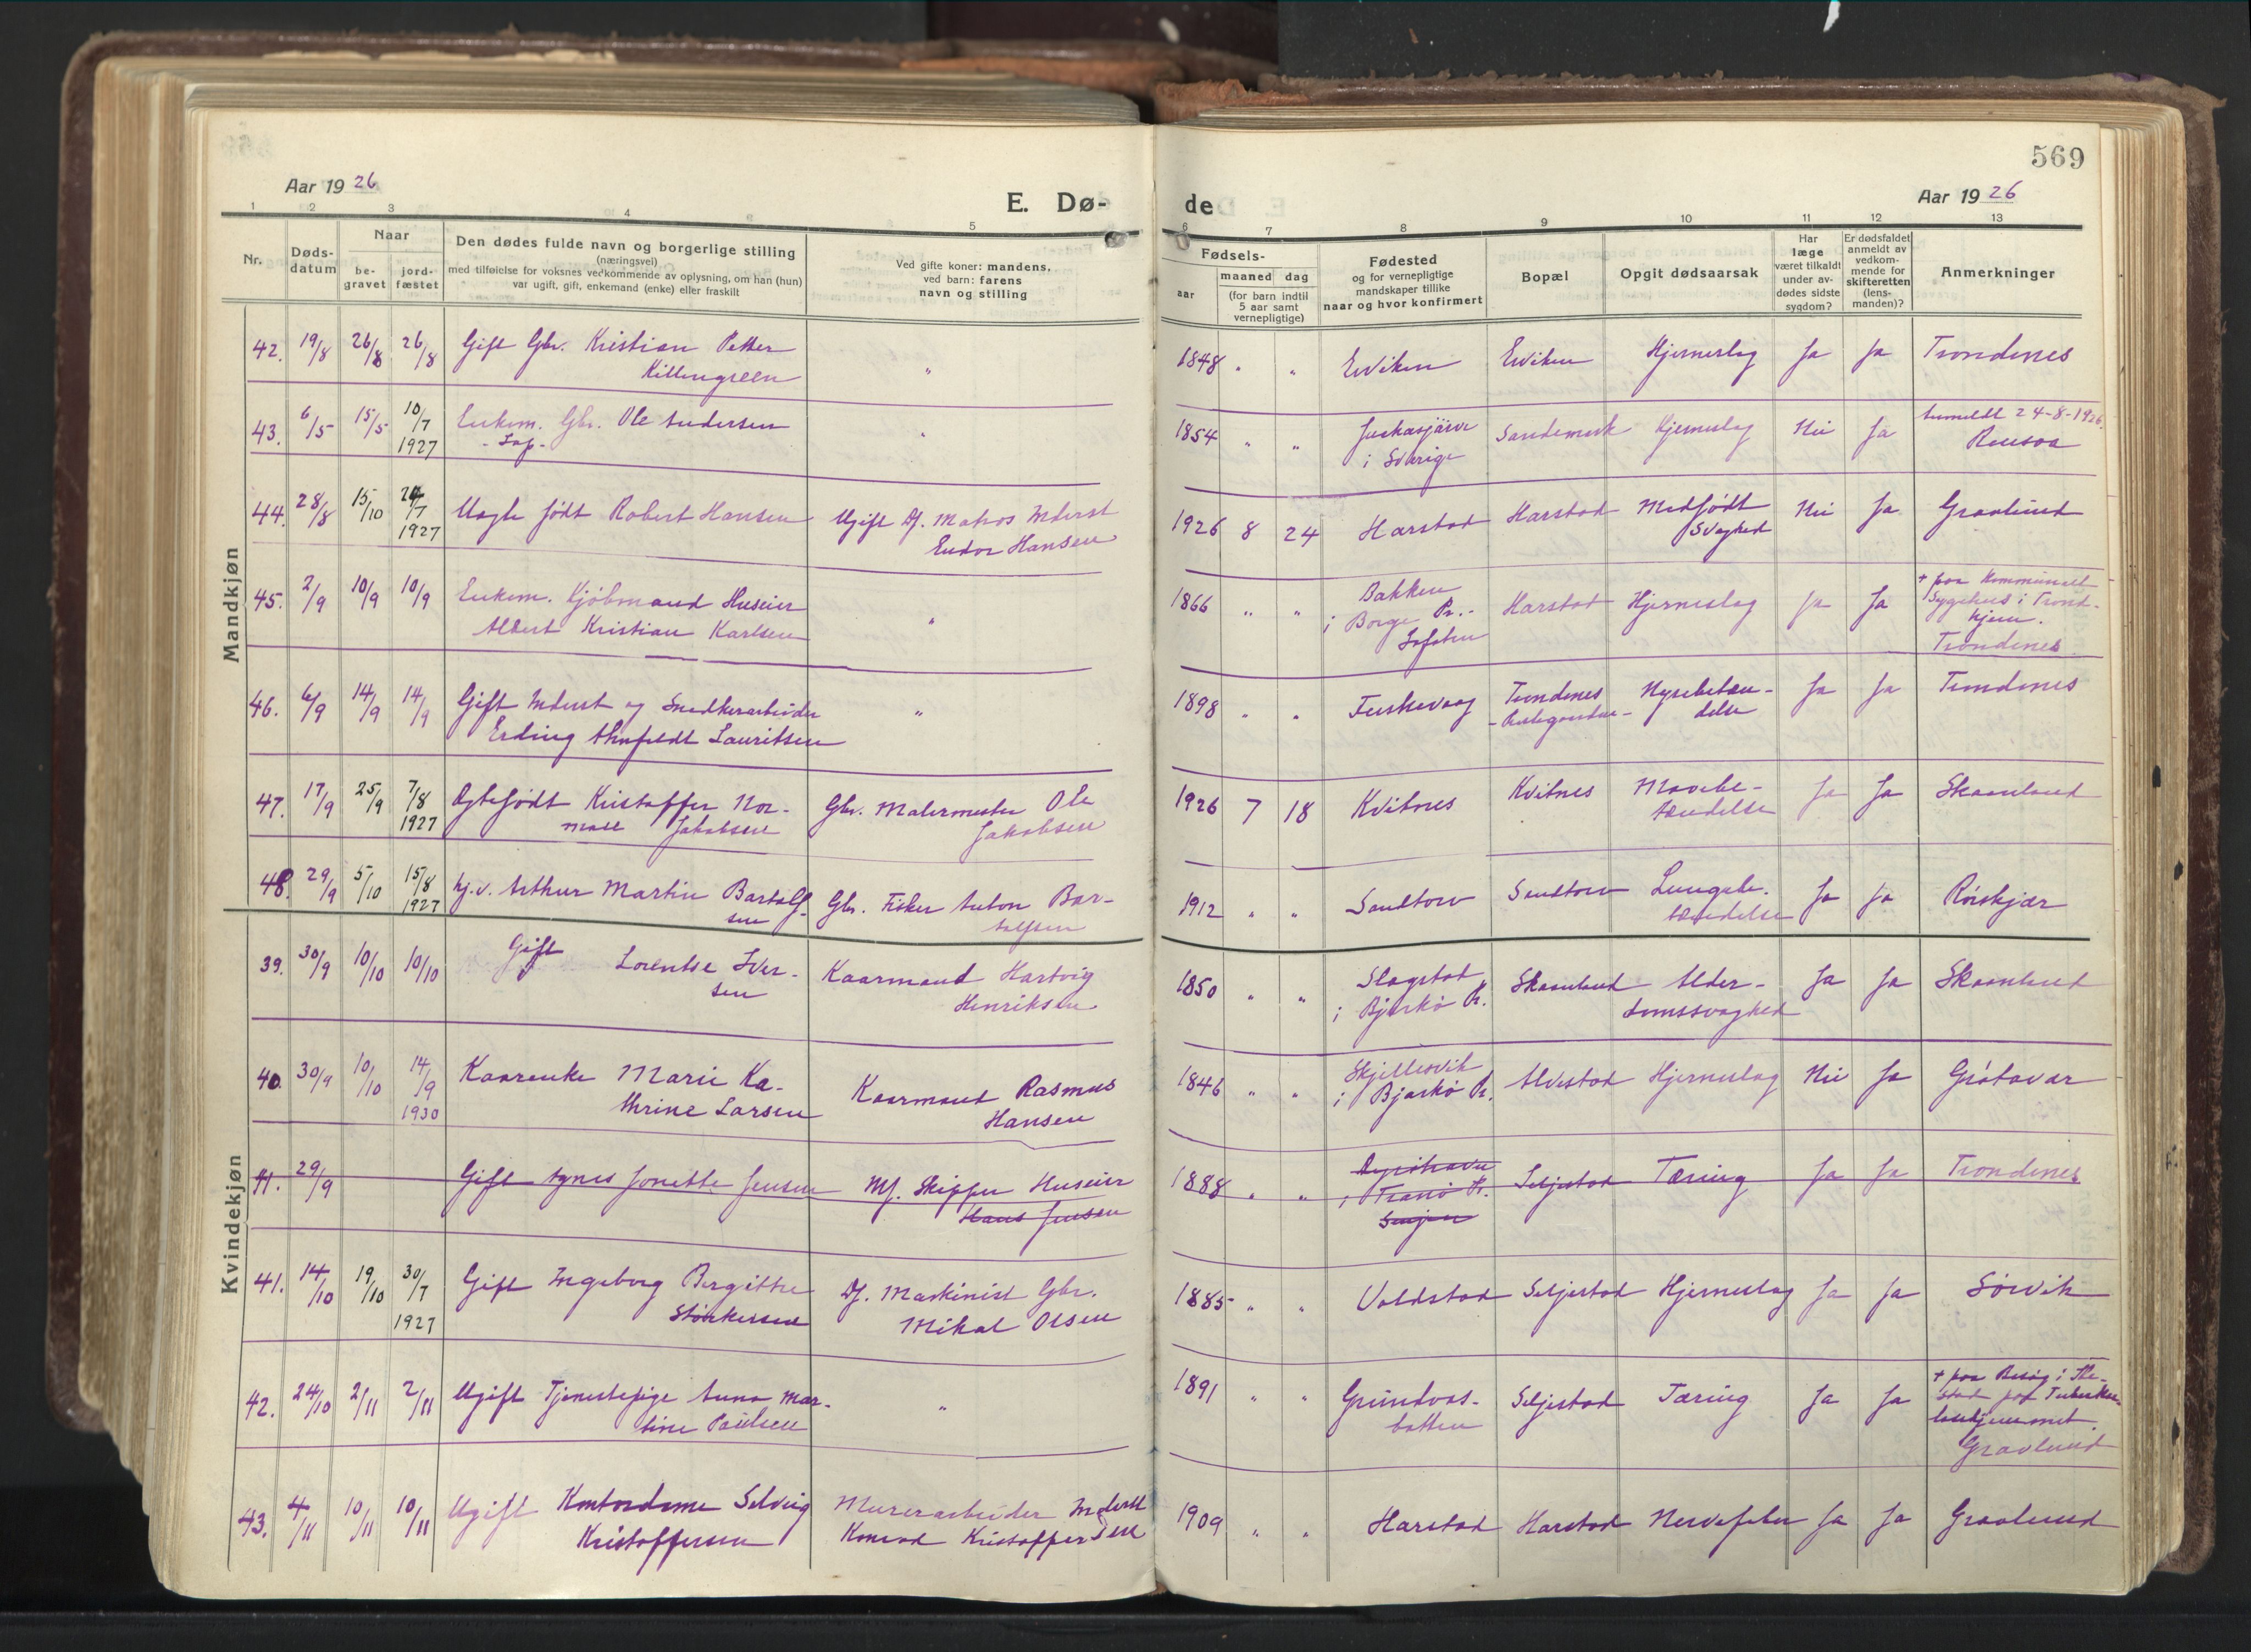 569
Aar 1926
E. Dø-
de
Aar 1926
1 2 3 4 5
6 7 8 9 10 11 12 13
Nr.
Døds-
datum
Naar
be-
gravet
jord-
fæstet
Den dødes fulde navn og borgerlige stilling
(næringsvei)
med tilføielse for voksnes vedkommende av oplysning, om han (hun)
var ugift, gift, enkemand (enke) eller fraskilt
Ved gifte koner: mandens,
ved barn: farens
navn og stilling
Fødsels-
aar
maaned dag
(for barn indtil
5 aar samt
vernepligtige)
Fødested
og for vernepligtige
mandskaper tillike
naar og hvor konfirmert
Bopæl
Opgit dødsaarsak
Har
læge
været tilkaldt
under av-
dødes sidste
sygdom?
Er dødsfaldet
anmeldt av
vedkom-
mende for
skifteretten
(lens-
manden)?
Anmerkninger
Mandkjøn
42. 19/8 26/8 26/8 Gift Gbr. Kristian Petter
Killengreen "
1848 " " Erviken Erviken Hjerneslag Ja Ja Trondenes
43. 6/5 15/5 10/7
1927 Enkem. Gbr. Ole Andersen
- Lap - "
1854 " " Juckasjärvi
i Sverige Sandemark Hjerneslag Nei Ja Anmeldt 24-8-1926.
Rensaa
44. 28/8 15/10 24/7
1927 Uegte født Robert Hansen Ugift Df. Matros Inderst
Endor Hansen
1926 8 24 Harstad Harstad Medfødt
Svaghed Nei Ja Gravlund
45. 2/9 10/9 10/9 Enkem. Kjøbmand Huseier
Albert Kristian Karlsen "
1866 " " Bakken
i Borge Pr. -
Lofoten Harstad Hjerneslag Ja Ja + paa Kommunalt
Sygehus i Trond-
hjem.
Trondenes
46. 6/9 14/9 14/9 Gift Inderst og Snedkerarbeider
Erding Ahnfeldt Lauritsen "
1898 " " Feskevaag Trondenes
- Prestegaarden - Nyrebetæn-
delse Ja Ja Trondenes
47. 17/9 25/9 7/8
1927 Ægtefødt Kristoffer Nor-
mall Jakobsen Gbr. Malermester Ole
Jakobsen
1926 7 18 Kvitnes Kvitnes Mavebe-
tændelse Ja Ja Skaanland
48. 29/9 5/10 15/8
1927 hj.v. Arthur Martin Bartolf-
sen Gbr. Fisker Anton Bar-
tolfsen
1912 " " Sandtorv Sandtorv Lungebe-
tændelse Ja Ja Rörskjær
Kvindekjøn
39. 30/9 10/10 10/10 Gift Lorentse Iver-
sen Kaarmand Hartvig
Henriksen
1850 " " Slagstad
i Bjarkö Pr. Skaanland Alder-
domssvaghed Ja Ja Skaanland
40. 30/9 10/10 14/9
1930 Kaarenke Marie Ka-
thrine Larsen Kaarmand Rasmus
Hansen
1846 " " Skjellesvik
i Bjarkö Pr. Alvestad Hjerneslag Nei Ja Grötavær
41. 29/9 Gift Agnes Jonette Jensen Mf. Skipper Huseier
Hans Jensen
1888 " " i Tranö Pr.
Senjen Seljestad Tæring Ja Ja Trondenes
41. 14/10 19/10 30/7
1927 Gift Ingeborg Bergitthe
Störkersen Df. Maskinist Gbr.
Mikal Olsen
1885 " " Voldstad Seljestad Hjerneslag Ja Ja Sörvik
42. 24/10 2/11 2/11 Ugift Tjenestepige Anna Mar-
tine Paulsen "
1891 " " Grundvas-
botten Seljestad Tæring Ja Ja + paa Besög i
stad paa Tuberku-
losehjemmet.
Gravlund
43. 4/11 10/11 10/11 Ugift Kontordame Solveig
Kristoffersen Murerarbeider Inderst
Konrad Kristoffersen
1909 " " Harstad Harstad Nervefeber Ja Ja Gravlund